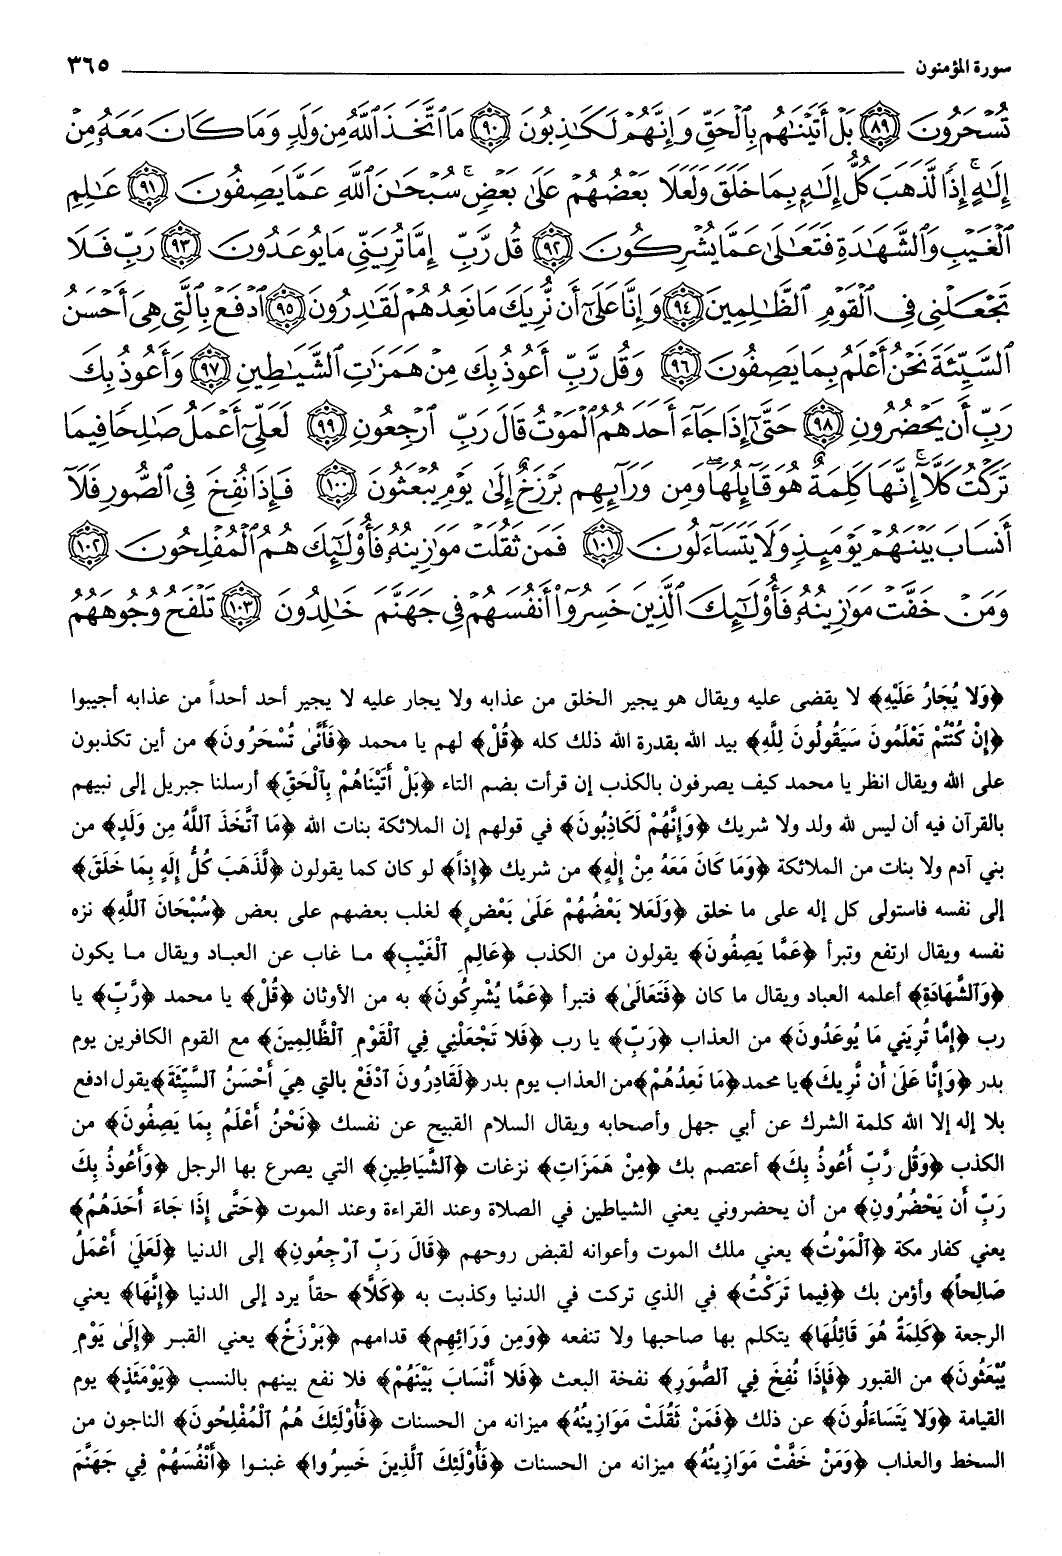 سورة المؤمنون ٣٦٥
تُسْحَرُونَ ٨٩ بَلْ أَتَيْنَٰهُم بِٱلْحَقِّ وَإِنَّهُمْ لَكَٰذِبُونَ ٩٠ مَا ٱتَّخَذَ ٱللَّهُ مِن وَلَدٍ وَمَا كَانَ مَعَهُۥ مِنْ
إِلَٰهٍ إِذًا لَّذَهَبَ كُلُّ إِلَٰهٍۭ بِمَا خَلَقَ وَلَعَلَا بَعْضُهُمْ عَلَىٰ بَعْضٍ سُبْحَٰنَ ٱللَّهِ عَمَّا يَصِفُونَ ٩١ عَٰلِمِ
ٱلْغَيْبِ وَٱلشَّهَٰدَةِ فَتَعَٰلَىٰ عَمَّا يُشْرِكُونَ ٩٢ قُل رَّبِّ إِمَّا تُرِيَنِّى مَا يُوعَدُونَ ٩٣ رَبِّ فَلَا
تَجْعَلْنِى فِى ٱلْقَوْمِ ٱلظَّٰلِمِينَ ٩٤ وَإِنَّا عَلَىٰٓ أَن نُّرِيَكَ مَا نَعِدُهُمْ لَقَٰدِرُونَ ٩٥ ٱدْفَعْ بِٱلَّتِى هِىَ أَحْسَنُ
ٱلسَّيِّئَةَ نَحْنُ أَعْلَمُ بِمَا يَصِفُونَ ٩٦ وَقُل رَّبِّ أَعُوذُ بِكَ مِنْ هَمَزَٰتِ ٱلشَّيَٰطِينِ ٩٧ وَأَعُوذُ بِكَ
رَبِّ أَن يَحْضُرُونِ ٩٨ حَتَّىٰٓ إِذَا جَآءَ أَحَدَهُمُ ٱلْمَوْتُ قَالَ رَبِّ ٱرْجِعُونِ ٩٩ لَعَلِّىٓ أَعْمَلُ صَٰلِحًا فِيمَا
تَرَكْتُ كَلَّآ إِنَّهَا كَلِمَةٌ هُوَ قَآئِلُهَا وَمِن وَرَآئِهِم بَرْزَخٌ إِلَىٰ يَوْمِ يُبْعَثُونَ ١٠٠ فَإِذَا نُفِخَ فِى ٱلصُّورِ فَلَآ
أَنسَابَ بَيْنَهُمْ يَوْمَئِذٍ وَلَا يَتَسَآءَلُونَ ١٠١ فَمَن ثَقُلَتْ مَوَٰزِينُهُۥ فَأُو۟لَٰٓئِكَ هُمُ ٱلْمُفْلِحُونَ ١٠٢
وَمَنْ خَفَّتْ مَوَٰزِينُهُۥ فَأُو۟لَٰٓئِكَ ٱلَّذِينَ خَسِرُوٓا۟ أَنفُسَهُمْ فِى جَهَنَّمَ خَٰلِدُونَ ١٠٣ تَلْفَحُ وُجُوهَهُمُ
﴿وَلَا يُجَارُ عَلَيْهِ﴾ لا يقضى عليه ويقال هو يجير الخلق من عذابه ولا يجار عليه لا يجير أحد أحداً من عذابه أجيبوا
﴿إِنْ كُنْتُمْ تَعْلَمُونَ سَيَقُولُونَ لِلَّهِ﴾ بيد الله بقدرة الله ذلك كله ﴿قُلْ﴾ لهم يا محمد ﴿فَأَنَّىٰ تُسْحَرُونَ﴾ من أين تكذبون
على الله ويقال انظر يا محمد كيف يصرفون بالكذب إن قرأت بضم التاء ﴿بَلْ أَتَيْنَاهُمْ بِٱلْحَقِّ﴾ أرسلنا جبريل إلى نبيهم
بالقرآن فيه أن ليس لله ولد ولا شريك ﴿وَإِنَّهُمْ لَكَاذِبُونَ﴾ في قولهم إن الملائكة بنات الله ﴿مَا ٱتَّخَذَ ٱللَّهُ مِن وَلَدٍ﴾ من
بني آدم ولا بنات من الملائكة ﴿وَمَا كَانَ مَعَهُ مِنْ إِلٰهٍ﴾ من شريك ﴿إِذاً﴾ لو كان كما يقولون ﴿لَّذَهَبَ كُلُّ إِلَهٍ بِمَا خَلَقَ﴾
إلى نفسه فاستولى كل إله على ما خلق ﴿وَلَعَلا بَعْضُهُمْ عَلَىٰ بَعْضٍ﴾ لغلب بعضهم على بعض ﴿سُبْحَانَ ٱللَّهِ﴾ نزه
نفسه ويقال ارتفع وتبرأ ﴿عَمَّا يَصِفُونَ﴾ يقولون من الكذب ﴿عَالِمِ ٱلْغَيْبِ﴾ ما غاب عن العباد ويقال ما يكون
﴿وَٱلشَّهَادَةِ﴾ أعلمه العباد ويقال ما كان ﴿فَتَعَالَىٰ﴾ فتبرأ ﴿عَمَّا يُشْرِكُونَ﴾ به من الأوثان ﴿قُلْ﴾ يا محمد ﴿رَّبِّ﴾ يا
رب ﴿إِمَّا تُرِيَنِي مَا يُوعَدُونَ﴾ من العذاب ﴿رَبِّ﴾ يا رب ﴿فَلا تَجْعَلْنِي فِي ٱلْقَوْمِ ٱلظَّالِمِينَ﴾ مع القوم الكافرين يوم
بدر ﴿وَإِنَّا عَلَىٰ أَن نُّرِيكَ﴾ يا محمد ﴿مَا نَعِدُهُمْ﴾ من العذاب يوم بدر ﴿لَقَادِرُونَ ٱدْفَعْ بالتي هِيَ أَحْسَنُ ٱلسَّيِّئَةَ﴾ يقول ادفع
بلا إله إلا الله كلمة الشرك عن أبي جهل وأصحابه ويقال السلام القبيح عن نفسك ﴿نَحْنُ أَعْلَمُ بِمَا يَصِفُونَ﴾ من
الكذب ﴿وَقُل رَّبِّ أَعُوذُ بِكَ﴾ أعتصم بك ﴿مِنْ هَمَزَاتِ﴾ نزغات ﴿ٱلشَّيَاطِينِ﴾ التي يصرع بها الرجل ﴿وَأَعُوذُ بِكَ
رَبِّ أَن يَحْضُرُونِ﴾ من أن يحضروني يعني الشياطين في الصلاة وعند القراءة وعند الموت ﴿حَتَّى إِذَا جَاءَ أَحَدَهُمُ﴾
يعني كفار مكة ﴿ٱلْمَوْتُ﴾ يعني ملك الموت وأعوانه لقبض روحهم ﴿قَالَ رَبِّ ٱرْجِعُونِ﴾ إلى الدنيا ﴿لَعَلَيٰ أَعْمَلُ
صَالِحاً﴾ وأؤمن بك ﴿فِيما تَرَكْتُ﴾ في الذي تركت في الدنيا وكذبت به ﴿كَلَّا﴾ حقاً يرد إلى الدنيا ﴿إِنَّهَا﴾ يعني
الرجعة ﴿كَلِمَةٌ هُوَ قَائِلُهَا﴾ يتكلم بها صاحبها ولا تنفعه ﴿وَمِن وَرَائِهِم﴾ قدامهم ﴿بَرْزَخٌ﴾ يعني القبر ﴿إِلَىٰ يَوْمِ
يُبْعَثُونَ﴾ من القبور ﴿فَإِذَا نُفِخَ فِي ٱلصُّورِ﴾ نفخة البعث ﴿فَلا أَنْسَابَ بَيْنَهُمْ﴾ فلا نفع بينهم بالنسب ﴿يَوْمَئَذٍ﴾ يوم
القيامة ﴿وَلا يَتَسَاءَلُونَ﴾ عن ذلك ﴿فَمَنْ ثَقُلَتْ مَوَازِينُهُ﴾ ميزانه من الحسنات ﴿فَأُوْلَئِكَ هُمُ ٱلْمُفْلِحُونَ﴾ الناجون من
السخط والعذاب ﴿وَمَنْ خَفَّتْ مَوَازِينُهُ﴾ ميزانه من الحسنات ﴿فَأُوْلَئِكَ ٱلَّذِينَ خَسِرُوا﴾ غبنوا ﴿أَنْفُسَهُمْ فِي جَهَنَّمَ